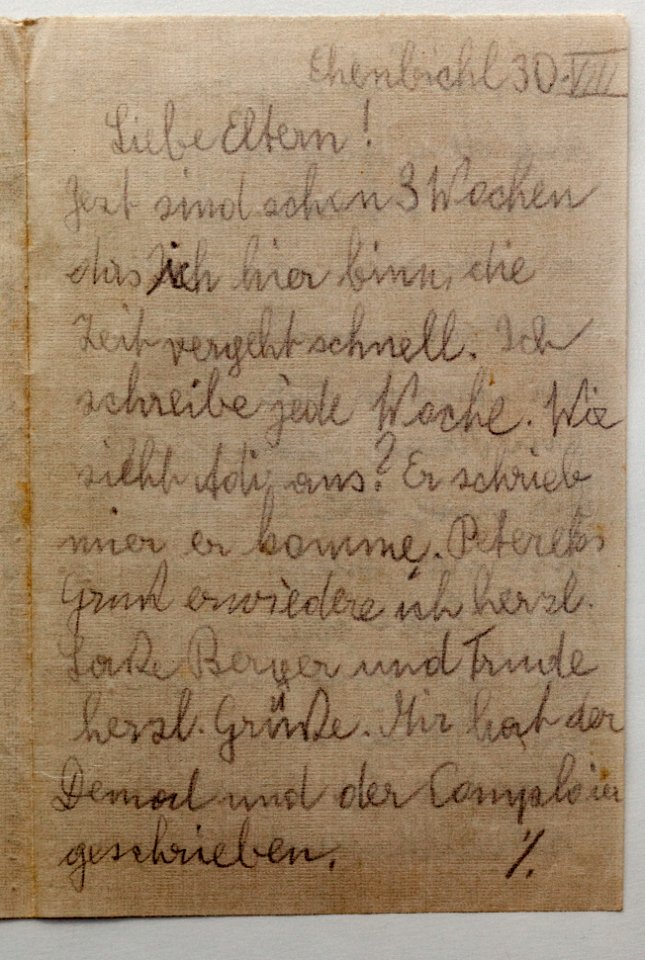 Ehenbichl 30.VIII
Liebe Eltern!
Jezt sind schon 3 Wochen
das ich hier binn, die
Zeit vergeht schnell. Ich
schreibe jede Woche. Wie
sieht Adi aus? Er schrieb
mier er komme.
Gruß erwiedere ich herzl.
Laße Berger und Trude
herzl. Grüße. Mir hat der
und der
geschrieben. ٪.